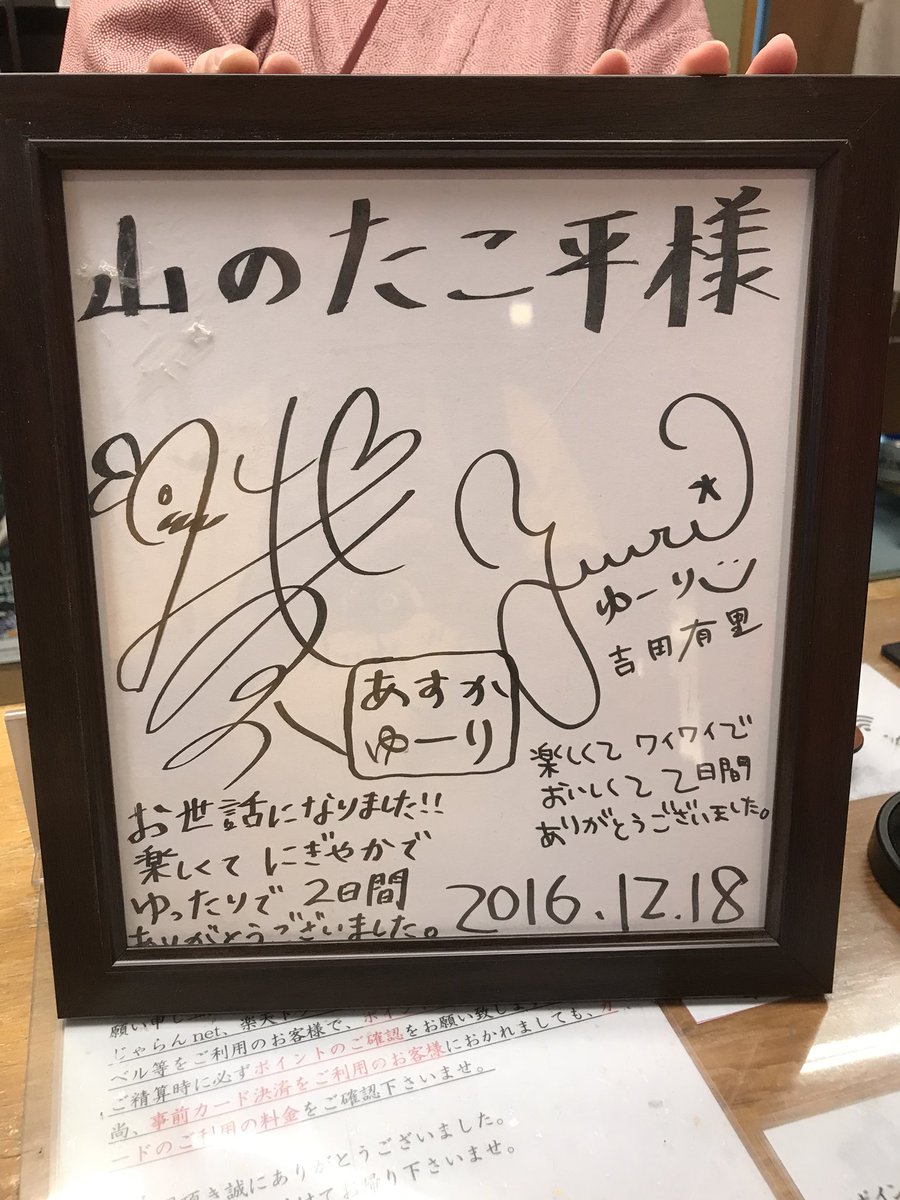 山のたこ平様
Yuuri
ゆーり
吉田有里
あすか
ゆーり
楽しくて ワイワイで
おいしくて 2日間
ありがとうございました。
お世話になりました!!
楽しくて にぎやかで
ゆったりで 2日間
ありがとうございました。
2016.12.18
じゃらんnet、楽天ト
ベル等をご利用のお客様で、ポイン
ご精算時に必ずポイントのご確認をお願い致しま
尚、事前カード決済をご利用のお客様におかれましても、カ
ードのご利用の料金をご確認下さいませ。
頂き誠にありがとうございました。
けてお帰り下さいませ。